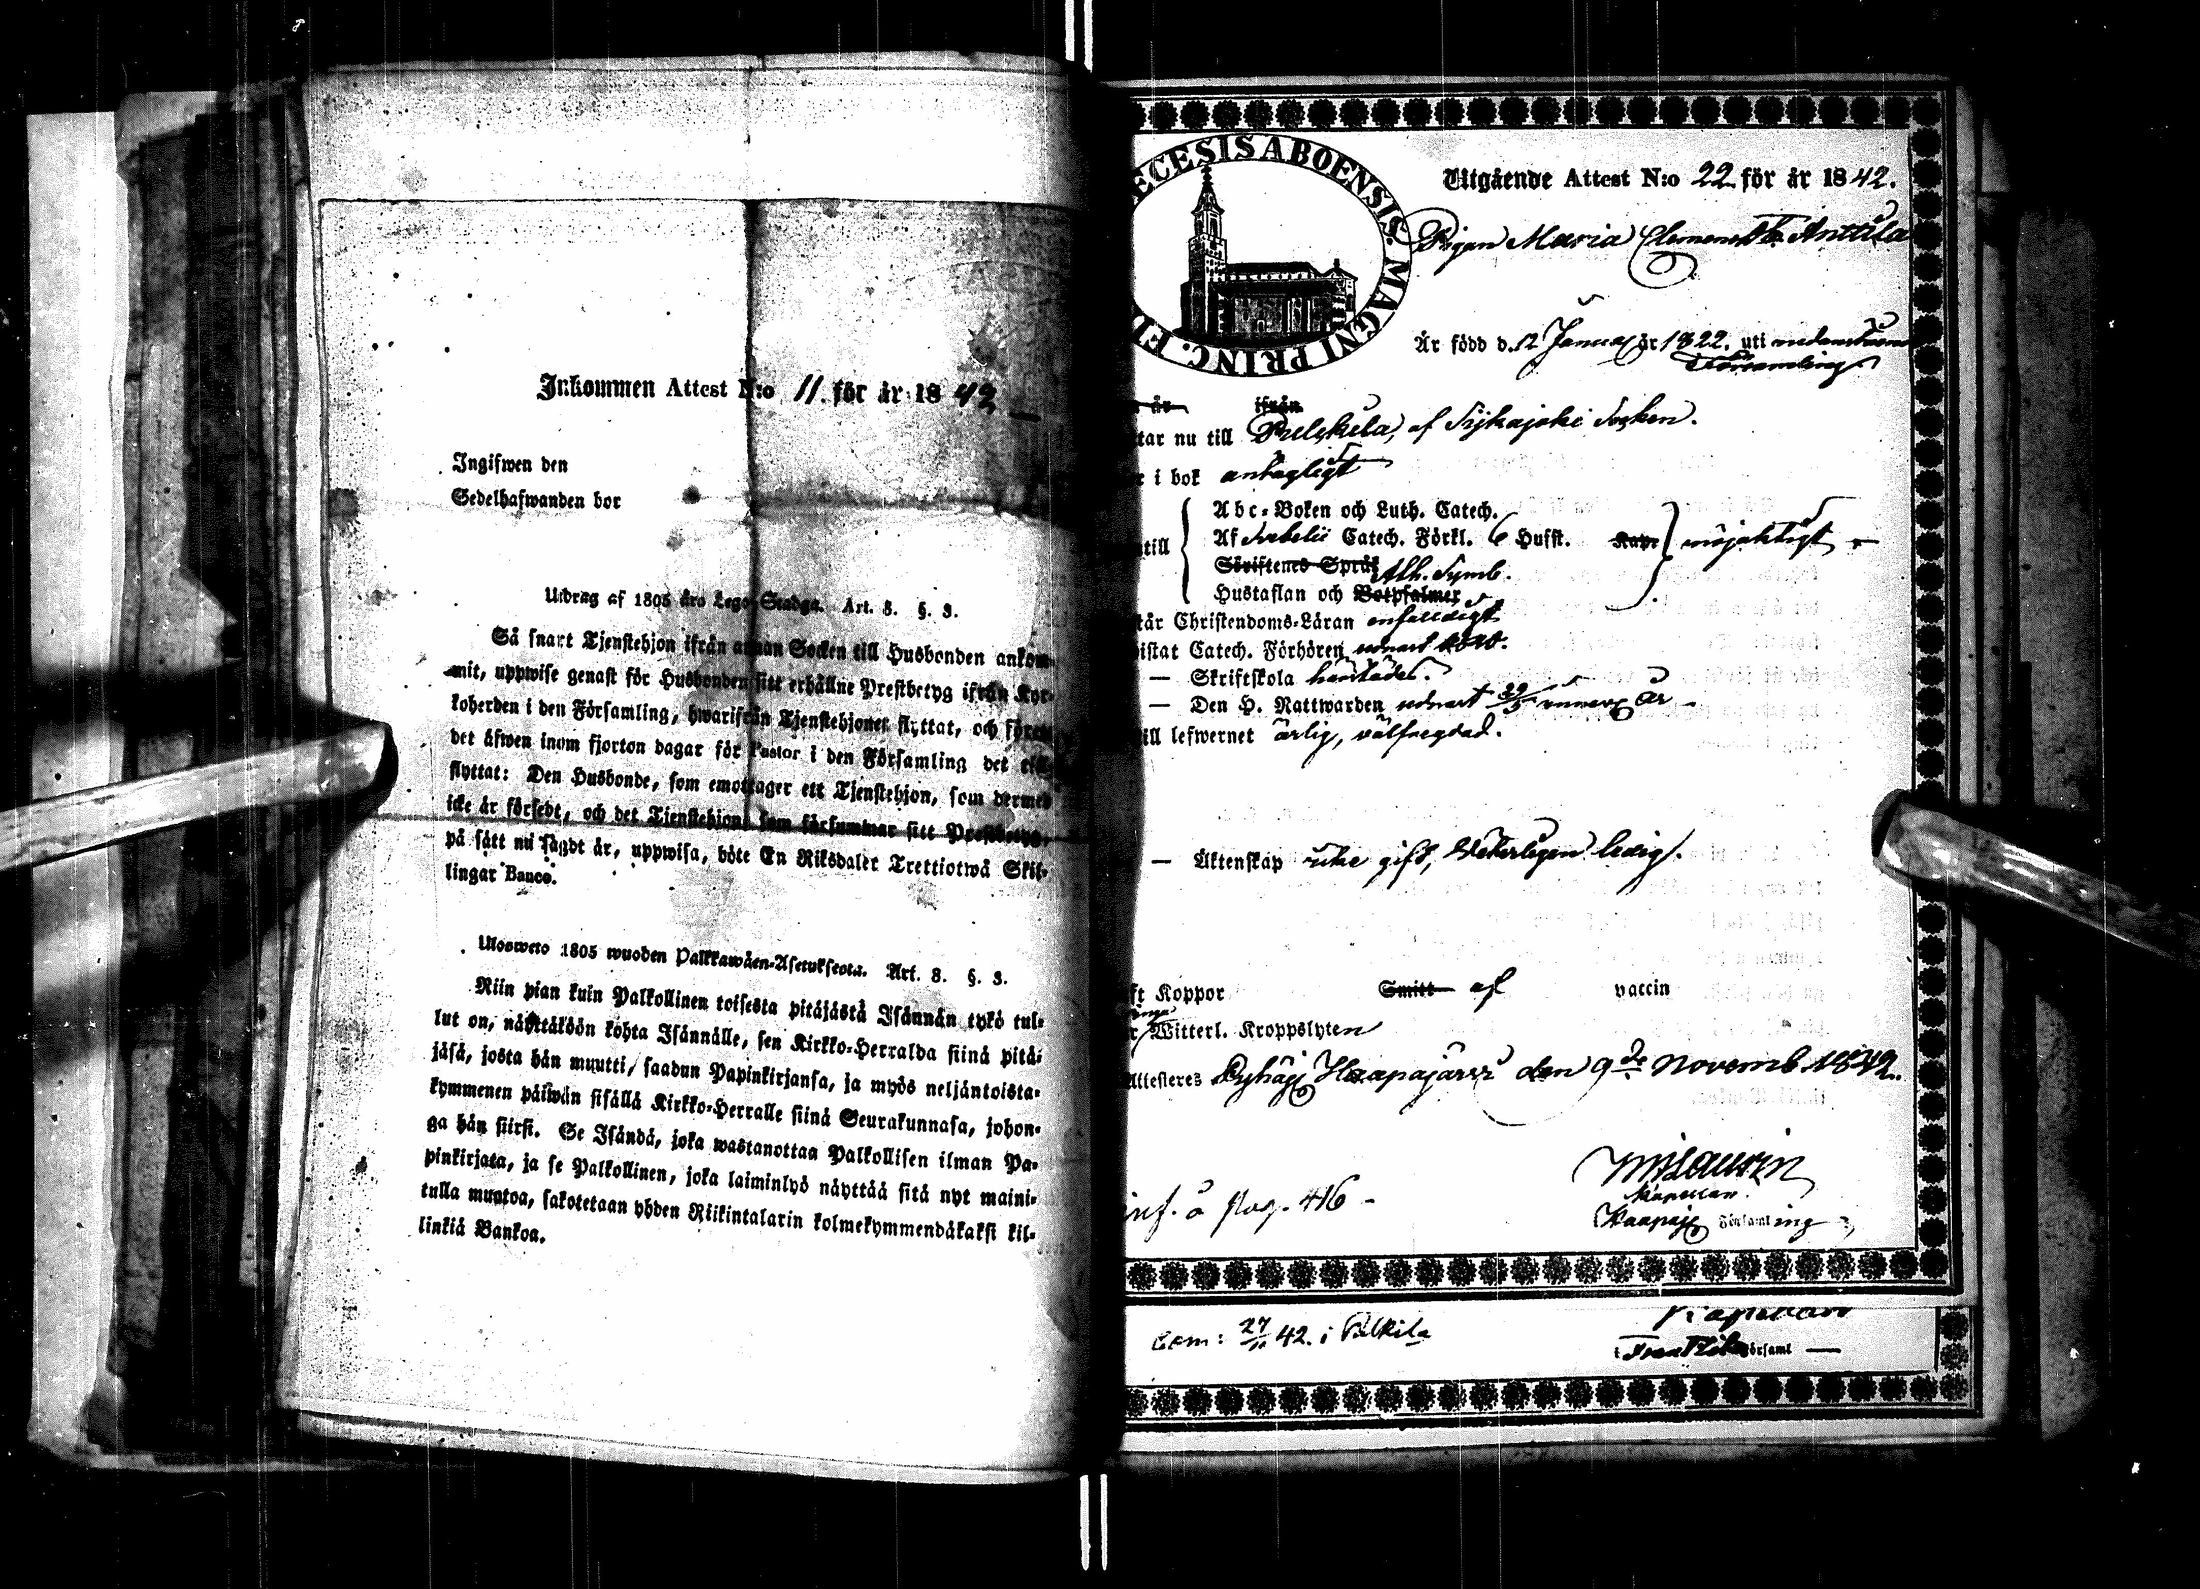 Inkommen Attest N:o 11. för år 1842
Ingifwen den
Sedelhafwanden bor
Utdrag af 1805 års Lego-Stadga. Art. 8. §. 3.
Så snart Tjenstehjon ifrån annan Socken till Husbonden ankom-
mit, uppwise genast för Husbonden sitt erhållne Prestbetyg ifrån Kyr-
koherden i den Församling, hwarifrån Tjenstehjonet flyttat, och förete
det äfwen inom fjorton dagar för Pastor i den Församling det till-
flyttat: Den Husbonde, som emottager ett Tjenstehjon, som dermed
icke är försedt, och det Tjenstehjon, som försummar sitt Prestbetyg,
på sätt nu sagdt är, uppwisa, böte En Riksdaler Trettiotwå Skil-
lingar Banco.
Ulosweto 1805 wuoden Palkkawäen-Asetuksesta. Art. 8. §. 3.
Niin pian kuin Palkollinen toisesta pitäjästä Isännän tykö tul-
lut on, näyttäköön kohta Isännälle, sen Kirkko-Herralda siinä pitä-
jäsä, josta hän muutti, saadun Papinkirjansa, ja myös neljäntoista-
kymmenen päiwän sisällä Kirkko-Herralle siinä Seurakunnasa, johon-
ga hän siirsi. Se Isändä, joka wastanottaa Palkollisen ilman Pa-
pinkirjata, ja se Palkollinen, joka laiminlyö näyttää sitä nyt maini-
tulla muotoa, sakotetaan yhden Riikintalarin kolmekymmendäkaksi kil-
linkiä Bankoa.
ECESIS ABOENSIS. MAGNI PRINC. FI
Utgående Attest N:o 22 för år 1842.
Pigan Maria Clemens Anttila
Är född d. 12 Januar år 1822. uti nedanskrefne
Församling
år ifrån
tar nu till Pelkila, af Sijkajoki Socken.
i bok antagligt
Abc-Boken och Luth. Catech.
till Af Svebelii Catech. Förkl. 6 Hufst. nöjaktigt
Skriftens Språk Ath. Symb.
Hustaflan och Botpsalmer
tår Christendoms-Läran enfalldigt
istat Catech. Förhören senast 1840.
— Skriftskola
— Den H. Nattwarden senast år
ill lefwernet ärlig, välfregdad.
— Äktenskap icke gift, veterligen ledig.
ft Koppor Smitt af vaccin
Witterl. Kroppslyten
Attesteres Pyhäj. Haapajärvi den 9de Novemb. 1842.
inf. å pag. 416
Kapellan
Haapaj. Församling
Kom: 27/11 42. i Pelkila
Kapellan
Frantzila Församl